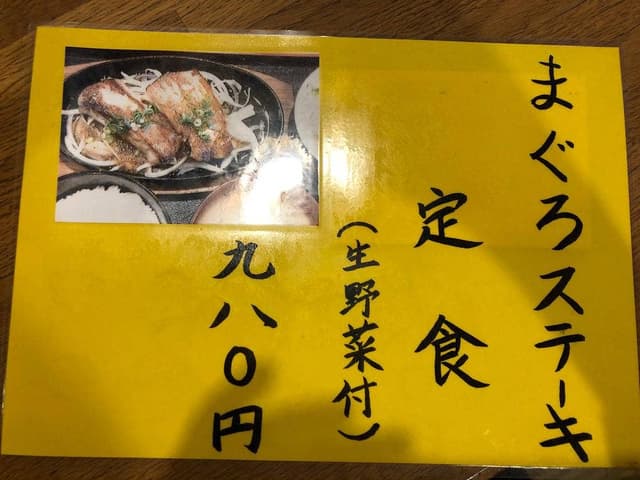 まぐろステーキ
定食
(生野菜付)
九八〇円